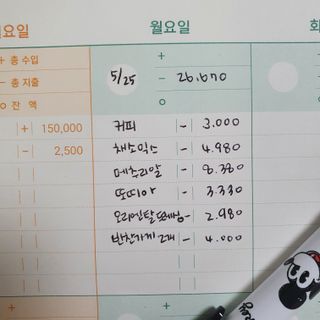 일요일 월요일 화
+ 총 수입 +
- 총 지출 5/25 - 26.670
o 잔 액 o
+ 150,000 커피 - 3.000
- 2,500 채소믹스 - 4.980
메추리알 - 8.380
또띠아 - 3.330
오리엔탈드레싱 - 2.980
반찬가게 2개 - 4.000